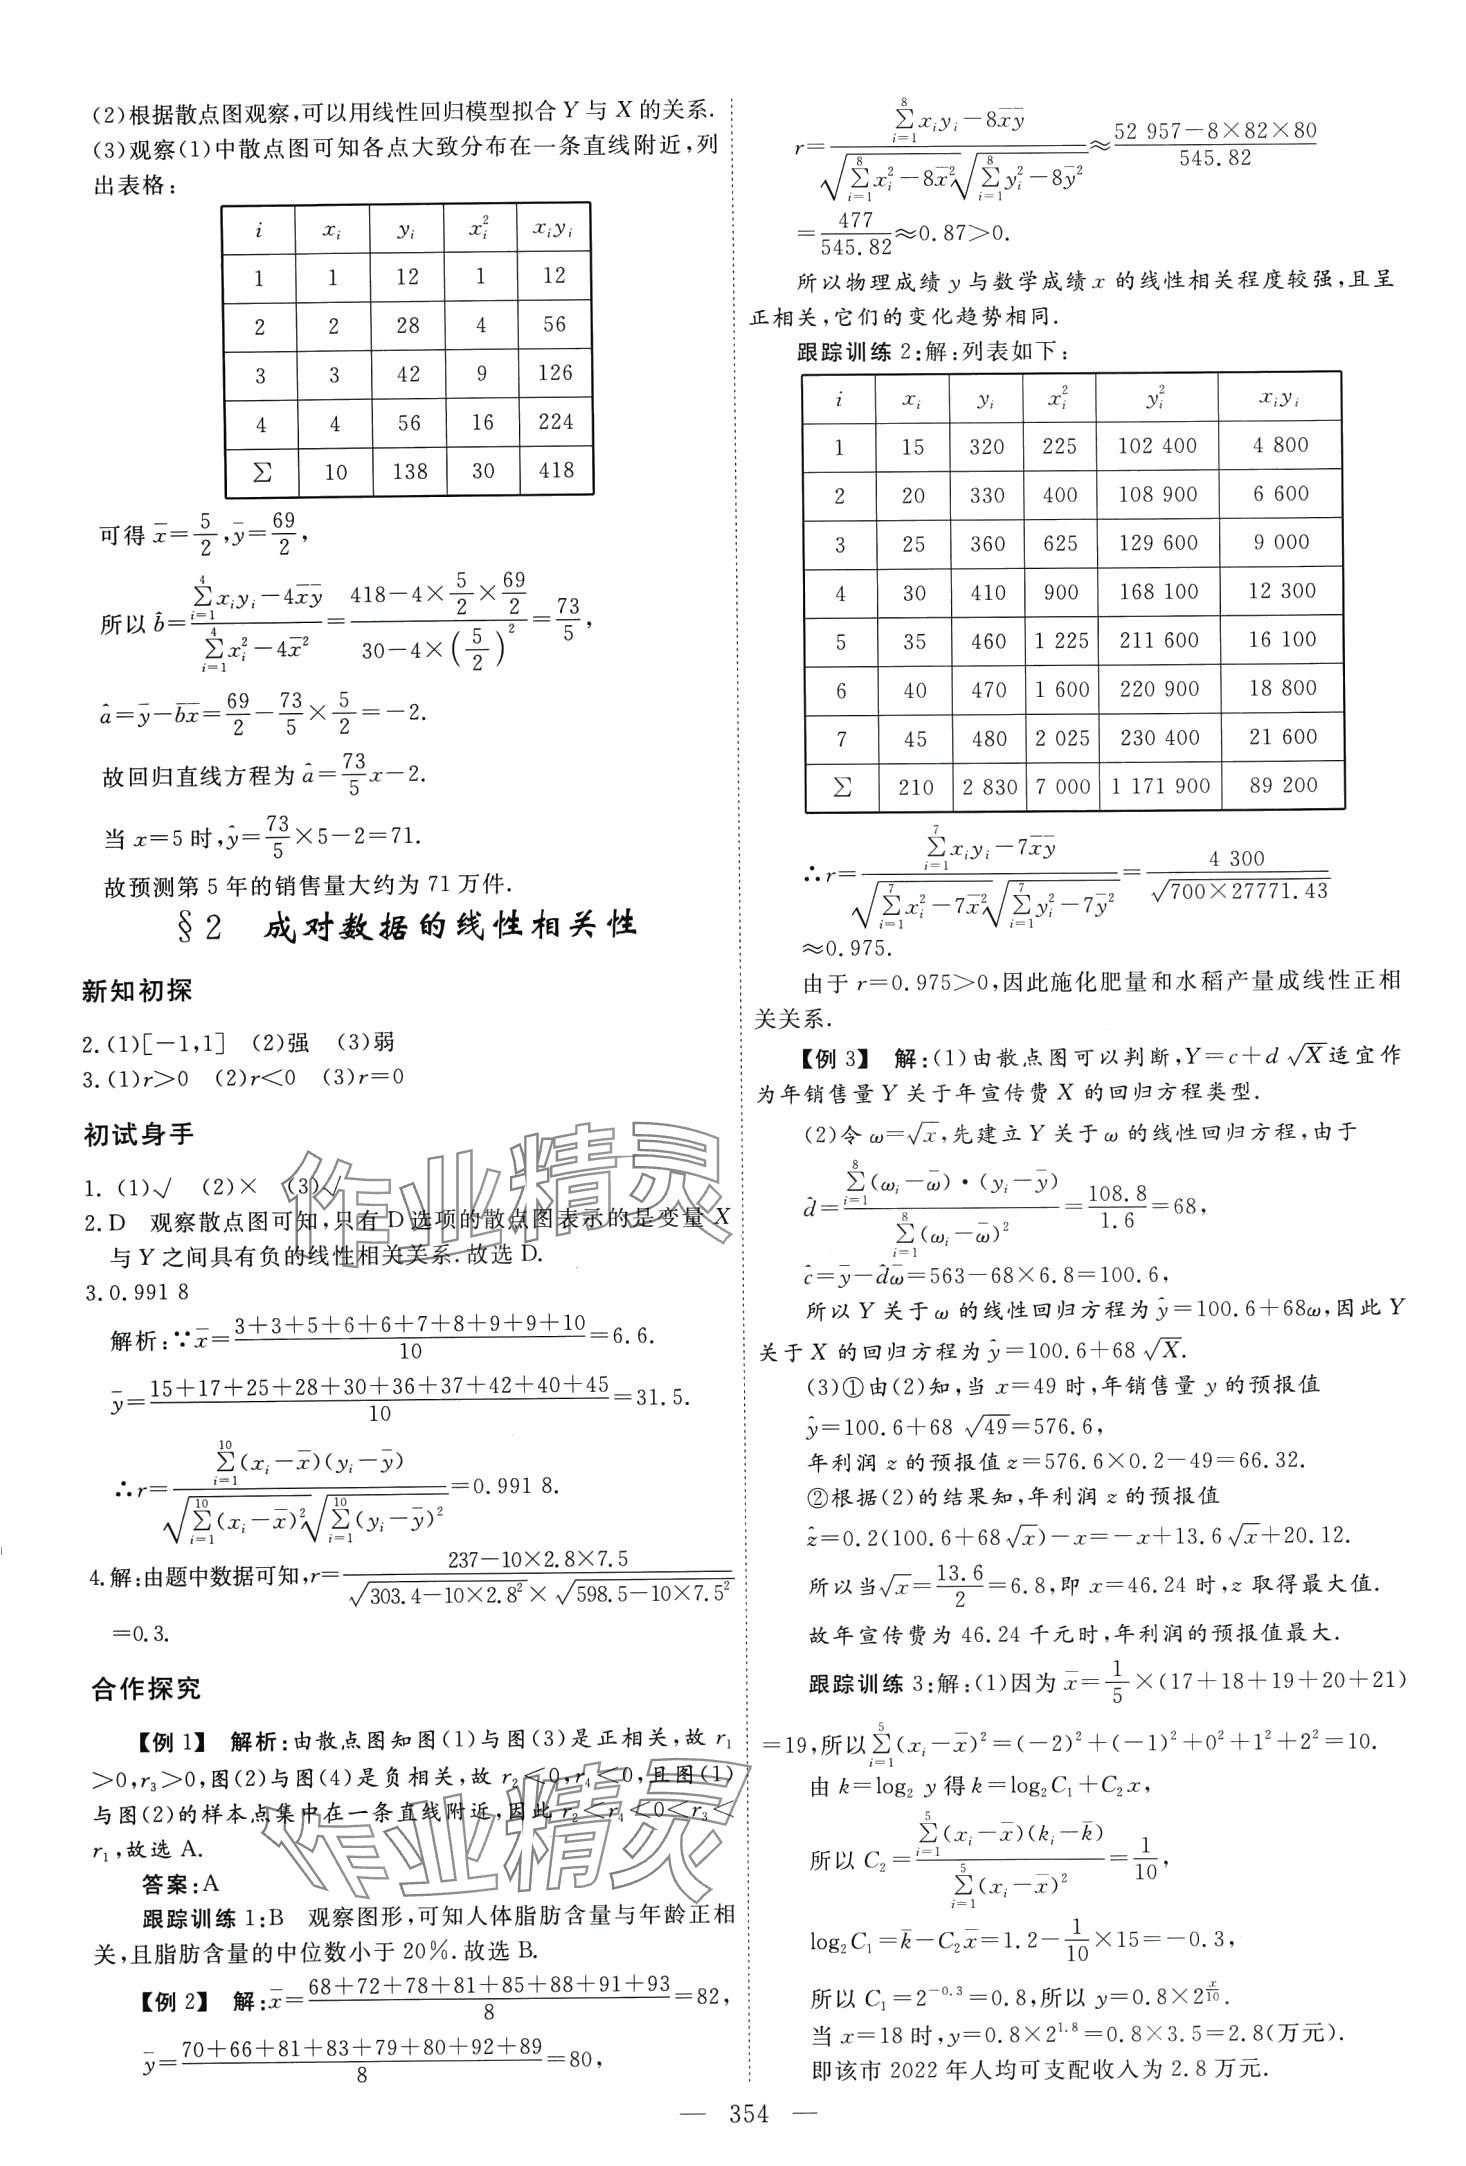 (2)根据散点图观察,可以用线性回归模型拟合 Y 与 X 的关系.
(3)观察(1)中散点图可知各点大致分布在一条直线附近,列
出表格:
i x_i y_i x_i^2 x_iy_i
1 1 12 1 12
2 2 28 4 56
3 3 42 9 126
4 4 56 16 224
∑ 10 138 30 418
可得 x̄=5/2,ȳ=69/2,
所以 b̂=(∑_{i=1}^{4}x_iy_i-4x̄ȳ)/(∑_{i=1}^{4}x_i^2-4x̄^2)=(418-4×5/2×69/2)/(30-4×(5/2)^2)=73/5,
â=ȳ-b̂x̄=69/2-73/5×5/2=-2.
故回归直线方程为 â=73/5x-2.
当 x=5 时,ŷ=73/5×5-2=71.
故预测第 5 年的销售量大约为 71 万件.
§2 成对数据的线性相关性
新知初探
2.(1)[-1,1] (2)强 (3)弱
3.(1)r>0 (2)r<0 (3)r=0
初试身手
1. (1)√ (2)× (3)√
2.D 观察散点图可知,只有 D 选项的散点图表示的是变量 X
与 Y 之间具有负的线性相关关系.故选 D.
3.0.991 8
解析:∵x̄=(3+3+5+6+6+7+8+9+9+10)/10=6.6.
ȳ=(15+17+25+28+30+36+37+42+40+45)/10=31.5.
∴r=∑_{i=1}^{10}(x_i-x̄)(y_i-ȳ)/(√(∑_{i=1}^{10}(x_i-x̄)^2)√(∑_{i=1}^{10}(y_i-ȳ)^2))=0.991 8.
4.解:由题中数据可知,r=(237-10×2.8×7.5)/(√(303.4-10×2.8^2)×√(598.5-10×7.5^2))
=0.3.
合作探究
【例 1】 解析:由散点图知图(1)与图(3)是正相关,故 r_1
>0,r_3>0,图(2)与图(4)是负相关,故 r_2<0,r_4<0,且图(1)
与图(2)的样本点集中在一条直线附近,因此 r_2<r_4<0<r_3<
r_1,故选 A.
答案:A
跟踪训练 1:B 观察图形,可知人体脂肪含量与年龄正相
关,且脂肪含量的中位数小于 20%.故选 B.
【例 2】 解:x̄=(68+72+78+81+85+88+91+93)/8=82,
ȳ=(70+66+81+83+79+80+92+89)/8=80,
r=(∑_{i=1}^{8}x_iy_i-8x̄ȳ)/(√(∑_{i=1}^{8}x_i^2-8x̄^2)√(∑_{i=1}^{8}y_i^2-8ȳ^2))≈(52 957-8×82×80)/545.82
=477/545.82≈0.87>0.
所以物理成绩 y 与数学成绩 x 的线性相关程度较强,且呈
正相关,它们的变化趋势相同.
跟踪训练 2:解:列表如下:
i x_i y_i x_i^2 y_i^2 x_iy_i
1 15 320 225 102 400 4 800
2 20 330 400 108 900 6 600
3 25 360 625 129 600 9 000
4 30 410 900 168 100 12 300
5 35 460 1 225 211 600 16 100
6 40 470 1 600 220 900 18 800
7 45 480 2 025 230 400 21 600
∑ 210 2 830 7 000 1 171 900 89 200
∴r=(∑_{i=1}^{7}x_iy_i-7x̄ȳ)/(√(∑_{i=1}^{7}x_i^2-7x̄^2)√(∑_{i=1}^{7}y_i^2-7ȳ^2))=4 300/√(700×27771.43)
≈0.975.
由于 r=0.975>0,因此施化肥量和水稻产量成线性正相
关关系.
【例 3】 解:(1)由散点图可以判断,Y=c+d√X适宜作
为年销售量 Y 关于年宣传费 X 的回归方程类型.
(2)令 ω=√x,先建立 Y 关于 ω 的线性回归方程,由于
d̂=∑_{i=1}^{8}(ω_i-ω̄)·(y_i-ȳ)/∑_{i=1}^{8}(ω_i-ω̄)^2=108.8/1.6=68,
ĉ=ȳ-d̂ω̄=563-68×6.8=100.6,
所以 Y 关于 ω 的线性回归方程为 ŷ=100.6+68ω,因此 Y
关于 X 的回归方程为 ŷ=100.6+68√X.
(3)①由(2)知,当 x=49 时,年销售量 y 的预报值
ŷ=100.6+68√49=576.6,
年利润 z 的预报值 z=576.6×0.2-49=66.32.
②根据(2)的结果知,年利润 z 的预报值
ẑ=0.2(100.6+68√x)-x=-x+13.6√x+20.12.
所以当√x=13.6/2=6.8,即 x=46.24 时,z 取得最大值.
故年宣传费为 46.24 千元时,年利润的预报值最大.
跟踪训练 3:解:(1)因为 x̄=1/5×(17+18+19+20+21)
=19,所以∑_{i=1}^{5}(x_i-x̄)^2=(-2)^2+(-1)^2+0^2+1^2+2^2=10.
由 k=log_2 y 得 k=log_2C_1+C_2x,
所以 C_2=∑_{i=1}^{5}(x_i-x̄)(k_i-k̄)/∑_{i=1}^{5}(x_i-x̄)^2=1/10,
log_2C_1=k̄-C_2x̄=1.2-1/10×15=-0.3,
所以 C_1=2^{-0.3}=0.8,所以 y=0.8×2^{x/10}.
当 x=18 时,y=0.8×2^{1.8}=0.8×3.5=2.8(万元).
即该市 2022 年人均可支配收入为 2.8 万元.
— 354 —
作业精灵
作业精灵